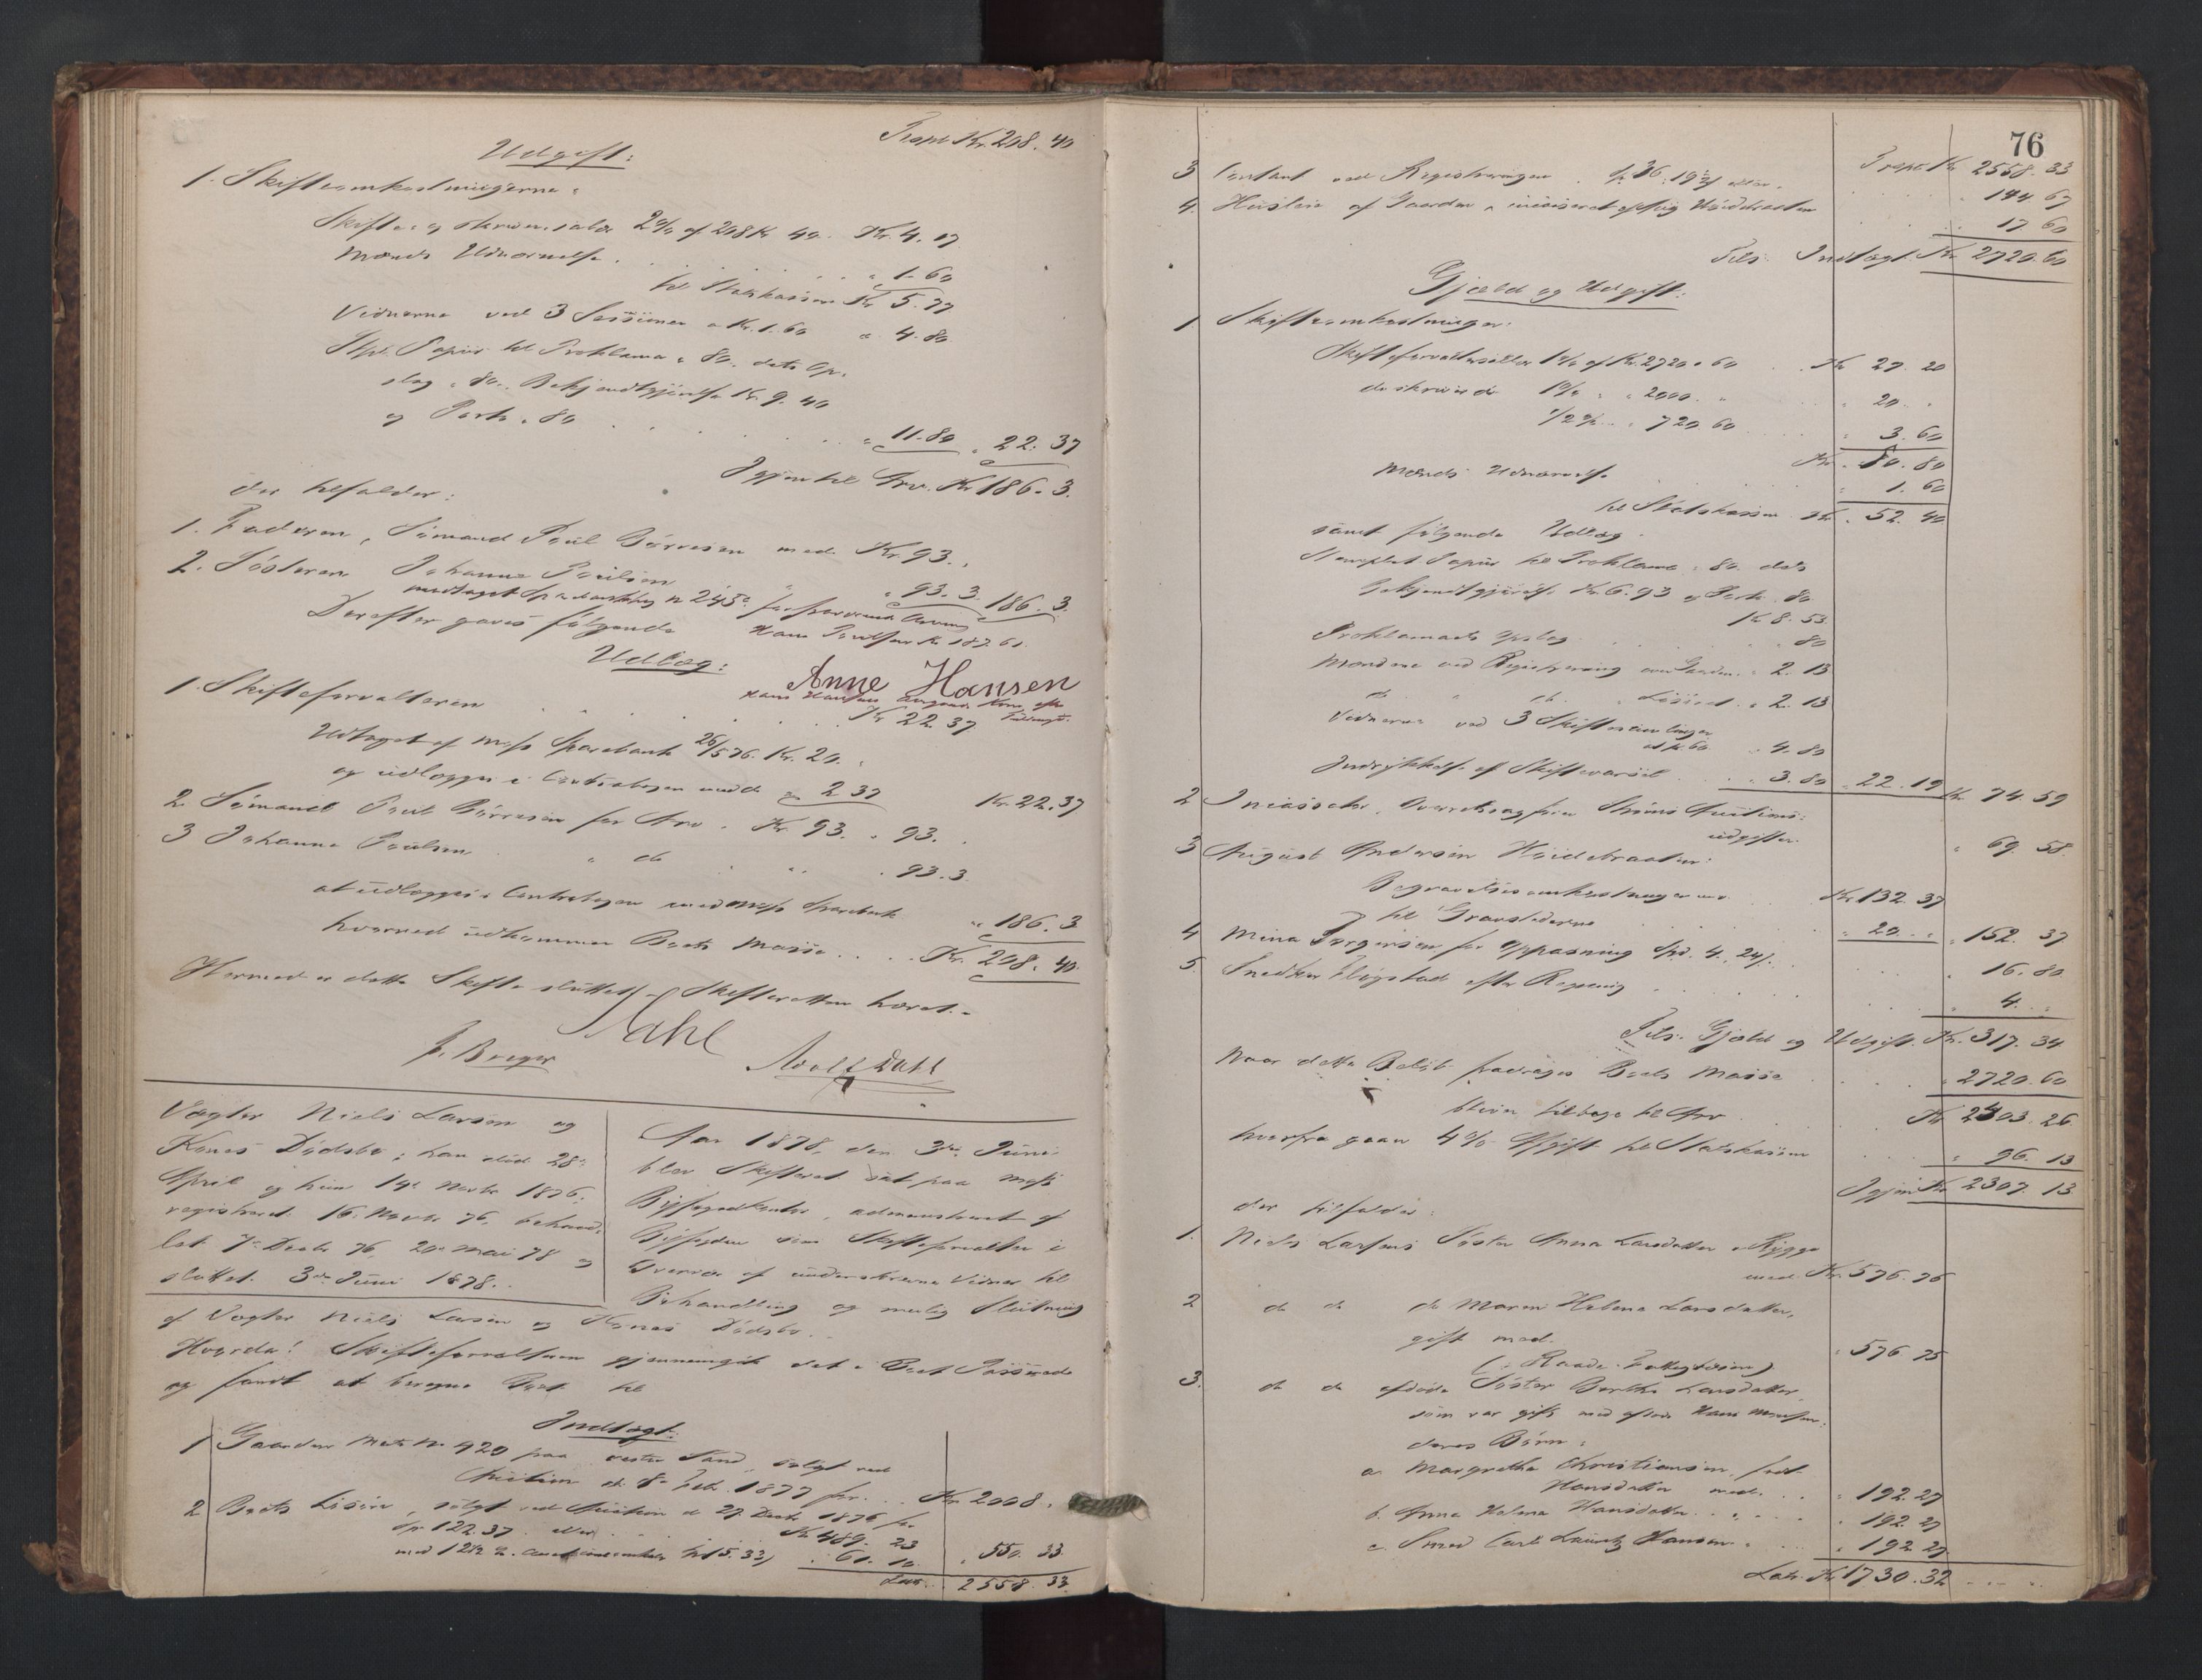 Transp. Kr. 208. 40
Udgift:
1. Skifteomkostningerne:
Skifte- og skriversalær 2% af 208 Kr 40. Kr. 4. 17
Mænds Udnævnelse . . . " 1. 60
til Statskassen Kr. 5. 77
Vidnerne ved 3 Sessioner a Kr. 1. 60 " 4. 80
Stpl. Papir til Proklama " 80. dets Op-
slag " 80. Bekjendtgjørelse Kr. 9. 40
og Porto " 80 . . . " 11. 80 " 22. 37
Igjen til Arv. Kr 186. 3.
der tilfalder:
1. Faderen, Sømand Poul Børresen med Kr. 93. "
2. Søsteren Johanna Poulsen " 93. 3. 186. 3.
Derefter gaves følgende
Hans Poulsen Kr 187. 61
Udlæg:
Anne Hansen
1. Skifteforvalteren . . . Kr 22. 37
Udtaget af Moss Sparebank 26/5 76. Kr. 20. "
og udlægges i Contrabogen med " 2 37 Kr. 22. 37
2. Sømand Poul Børresen for Arv. Kr 93. " 93.
3 Johanna Poulsen " do " 93. 3.
at udlægges i Contrabogen med Moss Sparebank " 186. 3
hvormed udkommer Boets Masse . . . Kr. 208. 40.
Hermed er dette Skifte sluttet, Skifteretten hævet. -
Stahl
J. Breyer Adolf Dahl
Vægter Niels Larsen og
Kones Dødsbo; han død 28de
April og hun 14de Novbr 1876.
registreret 16. Novbr 76, behand-
let 7de Decbr 76, 20de Mai 78 og
sluttet 3die Juni 1878.
Aar 1878, den 3die Juni
blev Skifteret sat paa Moss
Byfogedkontor, administreret af
Byfogden som Skifteforvalter i
Overvær af underskrevne Vidner til
Behandling og mulig Slutning
af Vægter Niels Larsen og Kones Dødsbo.
Hvorda! Skifteforvalteren gjennemgik det i Boet Passerede
og fandt at beregne Boet til
Indtægt:
1 Gaarden Matr. No 420 paa Vestre Sand, solgt ved
Auction d. 8de Feb. 1877 for . . . Kr 2008. "
2 Boets Løsøre, solgt ved Auction d 27 Decbr 1876 for
Sp 122. 37 eller . . . Kr 489. 23
med 12 1/2 % " 61. 10. " 550. 33.
Lat. 2558. 33.
76
Transp. Kr 2558. 33
3 Contant ved Registreringen Sp. 36. 19 eller " 144 67
4. Husleie af Gaarden " 17 60
Tils. Indtægt. Kr 2720. 60
Gjæld og Udgift:
1. Skifteomkostninger:
Skifteforvaltersalær 1% af Kr. 2720. 60 . . Kr 27. 20
do skriver do 1% " " 2000. " " 20. "
1/2 % " 720 60 " 3. 60
Kr. 50. 80
Mænds Udnævnelse " 1. 60
til Statskassen Kr. 52. 40
samt følgende Udlæg
Stemplet Papir til Proklama " 80. dets
Bekjendtgjørelse Kr. 6. 93 og Porto 80
Kr 8. 53.
Proklamaets Opslag . . . " 80
Mændene ved Registrering over Gaarden " 2. 13
do " do " Løsøret " 2. 13
Vidnerne ved 3 Skiftesamlinger
at Kr 60 " 4. 80
Indrykkelse af Skiftevarsel . . . " 3. 80 " 22. 19 Kr 74. 59
2 Overretssagfører Auctions-
udgifter " 69. 58.
3 August Andersen
Begravelsesomkostninger m.v. Kr 132. 37
" 20. " " 152. 37
4 Mina Jørgensen for Oppasning Spd. 4. 24/. " 16. 80
5. Snedker efter Regning " 4. "
Tils. Gjæld og Udgift. Kr. 317. 34
Naar dette Beløb fradrages Boets Masse " 2720. 60
bliver tilbage til Arv . . . Kr 2403. 26
hvorfra gaar 4% Afgift til Statskassen " 96. 13
Igjen Kr 2307. 13
der tilfalder:
1. Niels Larsens Søster Anna Larsdatter i Rygge
med Kr. 576. 75
2 do do do Maren Helena Larsdatter,
gift med " 576. 75
3. do do afdøde Søster Berthe Larsdatter,
som var gift med afdøde Hans
deres Børn:
a. Margrethe Christiansen, født
Hansdatter med . . " 192. 27
b. Anna Helena Hansdatter . . . " 192. 27
c. Smed Carl Lauritz Hansen " 192. 27
Lat. Kr. 1730. 32